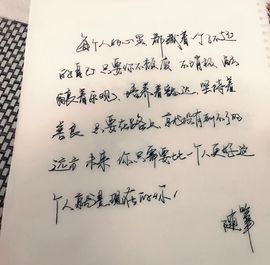 每个人的心里都藏着一个了不起
的自己 只要你不颓废 不消极 一
直乐观 培养着豁达 坚持着
善良 只要在路上 就没有到不了的
远方 未来 你只需要比一个人更好 这
个人就是现在的你！
随笔